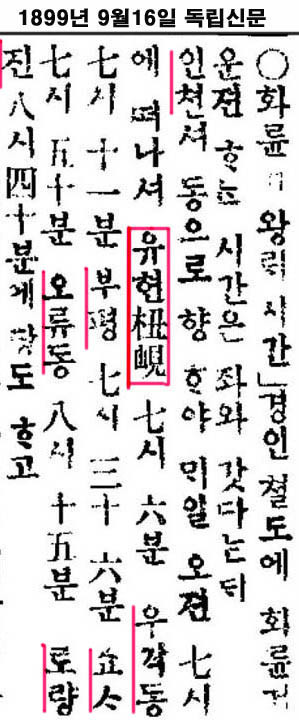 1899년 9월16일 독립신문
〇화륜거 왕ᄅᆡ 시간」경인 쳘도에 화륜거
운젼 ᄒᆞᄂᆞᆫ 시간은 좌와 갓다는ᄃᆡ
인쳔셔 동으로 향 ᄒᆞ야 ᄆᆡ일 오젼 七시
에 ᄯᅥ나셔 유현杻峴 七시 六분 우각동
七시 十一분 부평 七시 三十六분 쇼ᄉᆞ
七시 五十분 오류동 八시 十五분 로량
진 八시 四十분에 당도 ᄒᆞ고